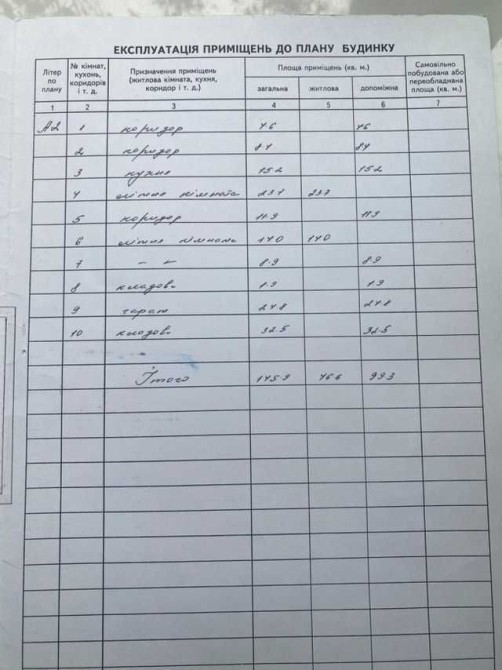 ЕКСПЛУАТАЦІЯ ПРИМІЩЕНЬ ДО ПЛАНУ БУДИНКУ
Літер по плану | № кімнат, кухонь, коридорів і т. д. | Призначення приміщень (житлова кімната, кухня, коридор і т. д.) | Площа приміщень (кв. м.) | Самовільно побудована або переобладнана площа (кв. м.)
загальна | житлова | допоміжна
1 | 2 | 3 | 4 | 5 | 6 | 7
А2 | 1 | коридор | 7.6 | 7.6
2 | коридор | 8.4 | 8.4
3 | кухня | 15.2 | 15.2
4 | кімната | 23.7 | 23.7
5 | коридор | 11.9 | 11.9
6 | кімната | 14.0 | 14.0
7 | – | 8.9 | 8.9
8 | кладов. | 1.9 | 1.9
9 | гараж | 27.8 | 27.8
10 | кладов. | 32.5 | 32.5
Итого